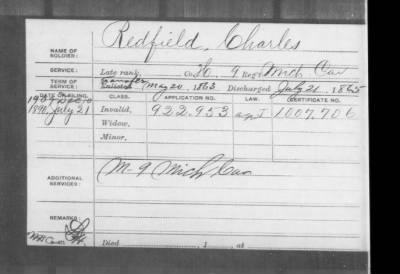 Redfield, Charles
NAME OF SOLDIER:
SERVICE: Late rank, Co. H, 9 Reg't Mich Cav
TERM OF SERVICE: Enlisted May 20, 1863 Discharged July 21, 1865
DATE OF FILING. CLASS. APPLICATION NO. LAW. CERTIFICATE NO.
1890, July 21 Invalid, 922.953 1007.706
Widow,
Minor,
ADDITIONAL SERVICES: M-9 Mich Cav
REMARKS:
Died , 1 , at